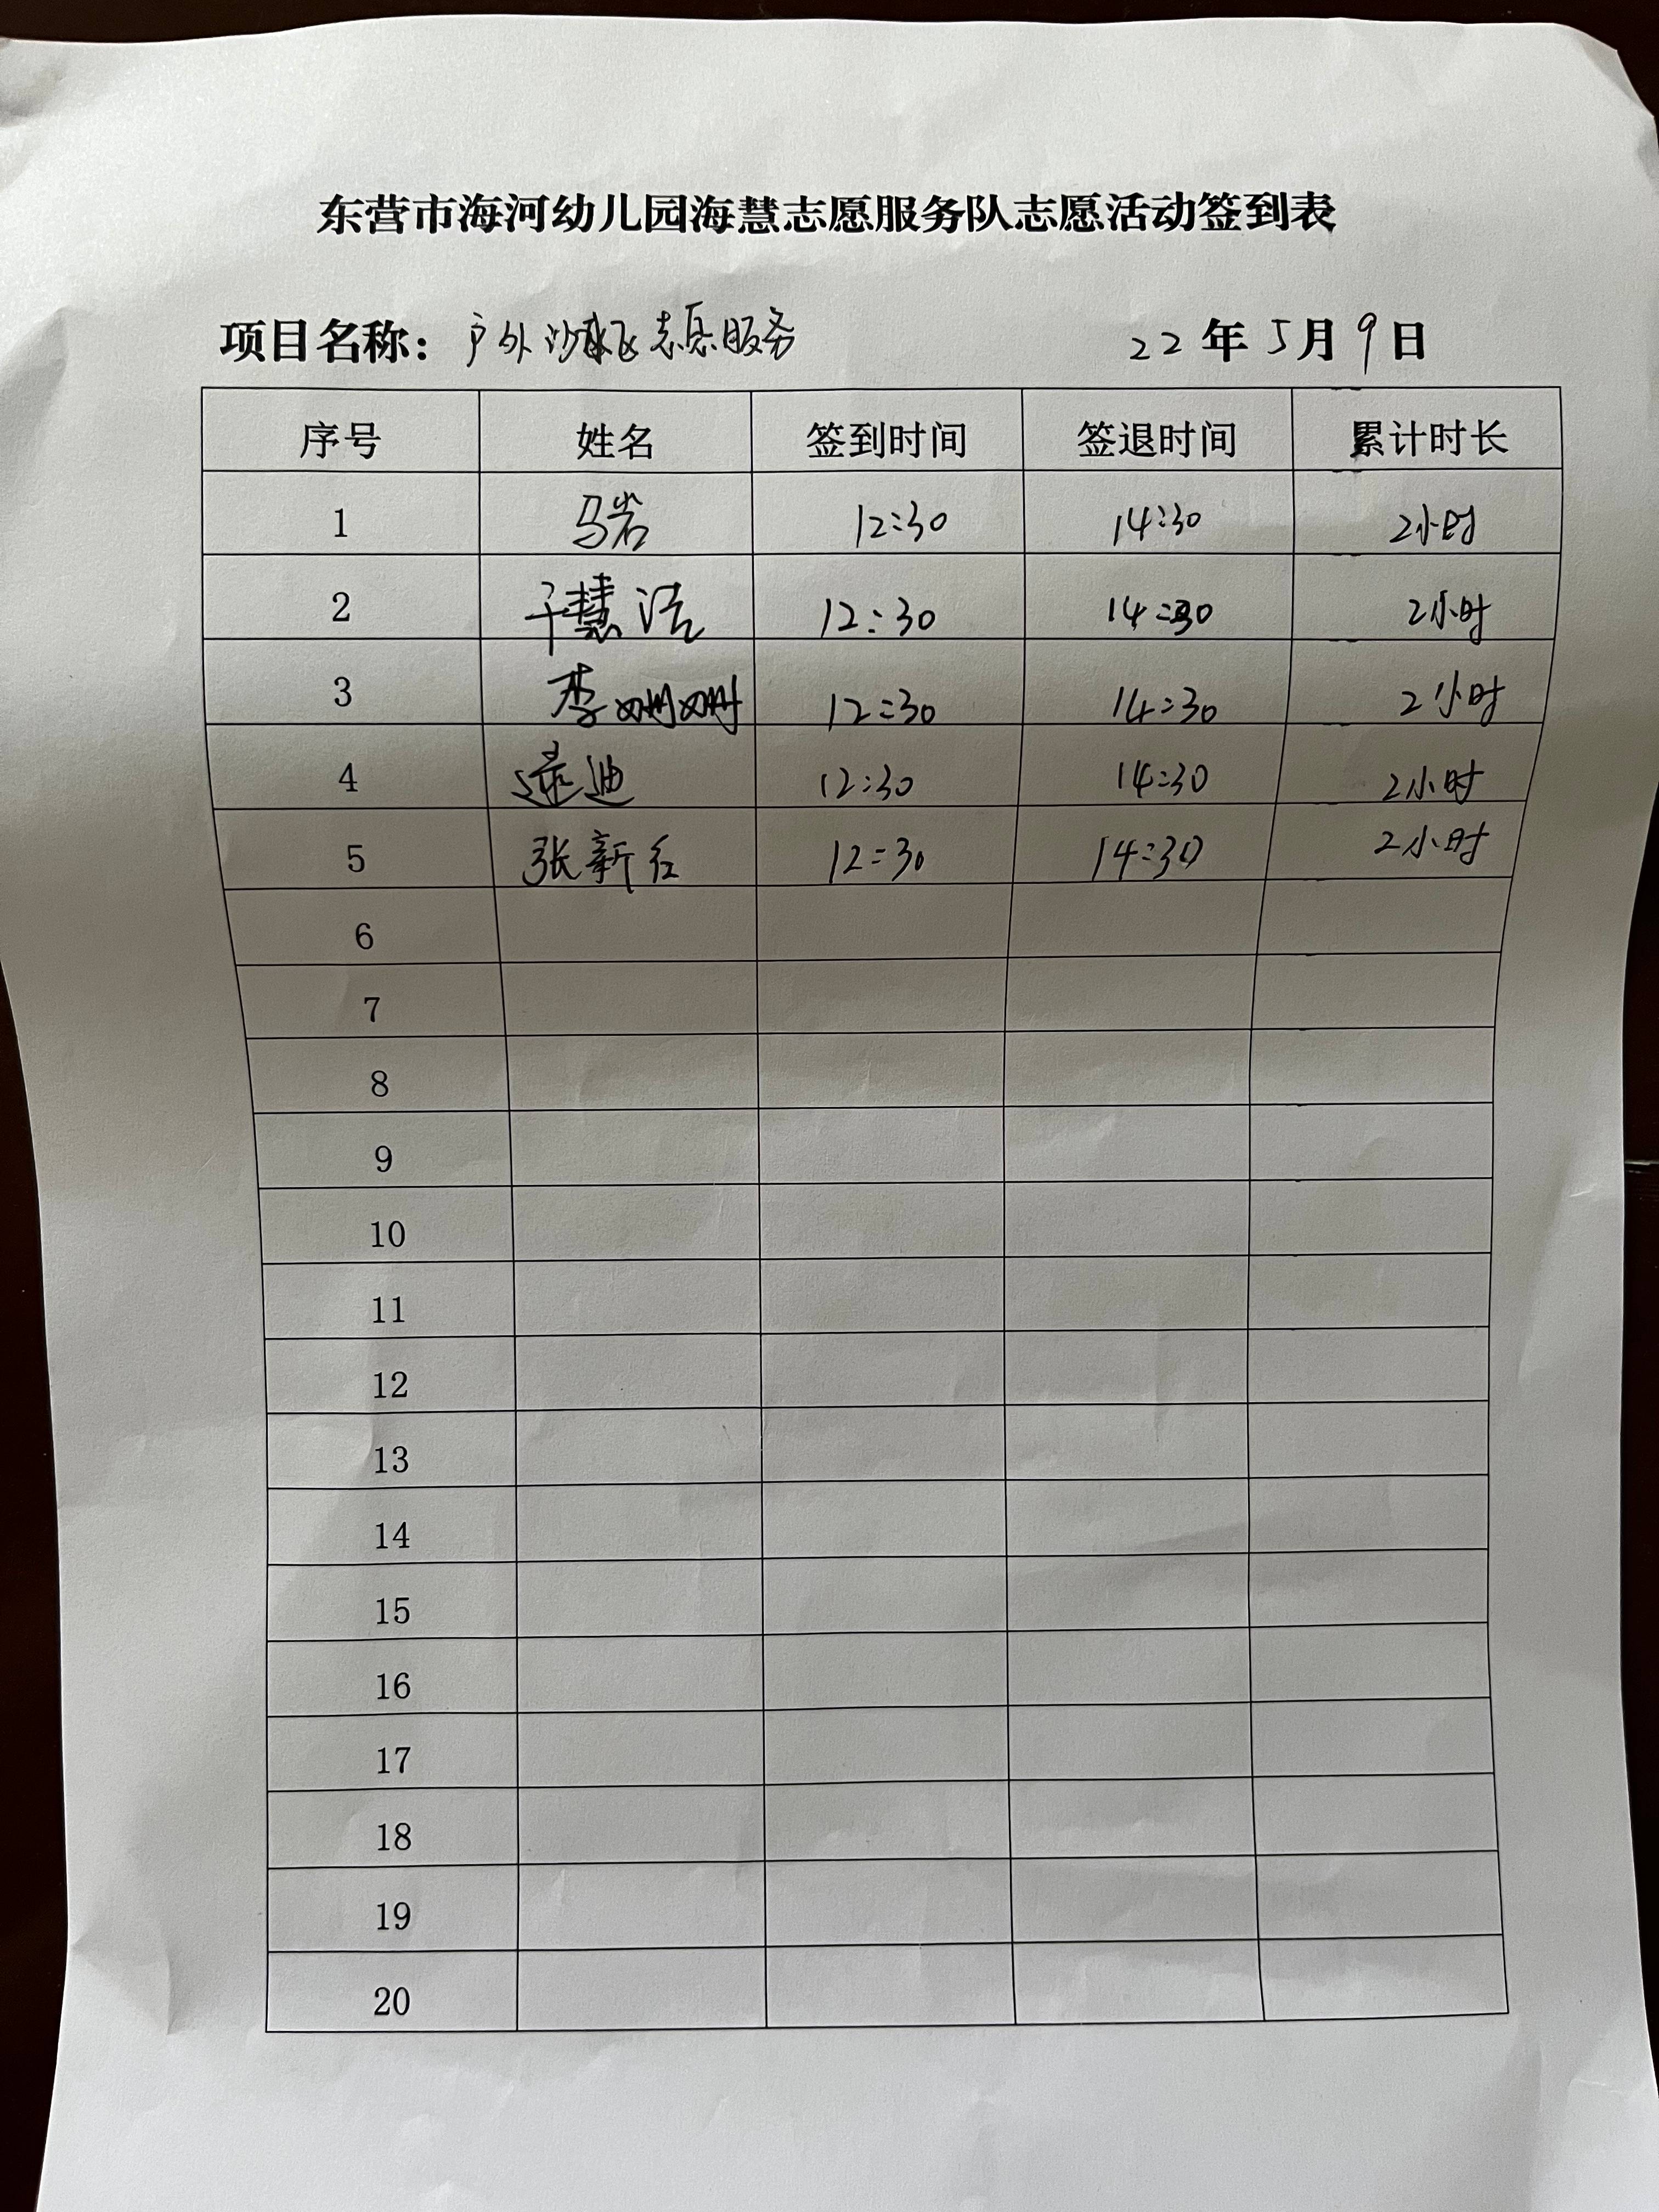 东营市海河幼儿园海慧志愿服务队志愿活动签到表
项目名称：户外沙水区志愿服务 22年5月9日
序号 姓名 签到时间 签退时间 累计时长
1 马岩 12:30 14:30 2小时
2 慧洁 12:30 14:30 2小时
3 李姗姗 12:30 14:30 2小时
4 迪 12:30 14:30 2小时
5 张新红 12:30 14:30 2小时
6
7
8
9
10
11
12
13
14
15
16
17
18
19
20